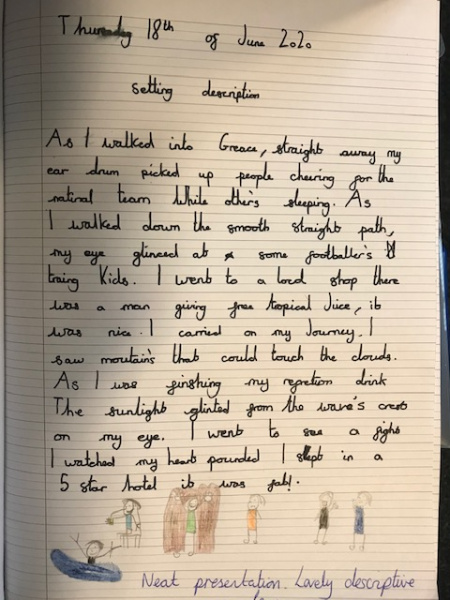 Thursday 18th of June 2020
setting description
As I walked into Greace, straight away my
ear drum picked up people cheering for the
natinal team While other's sleeping. As
I walked down the smooth straight path,
my eye glinced at some footballer's
traing Kids. I went to a local shop there
was a man giving free tropical Juice, it
was nice. I carried on my Journey. I
saw moutain's that could touch the clouds.
As I was finshing my repretion drink
The sunlight glinted from the wave's crest
on my eye. I went to see a fight
I watched my heart pounded I slept in a
5 star hotel it was fab!.
Neat presentation. Lovely descriptive